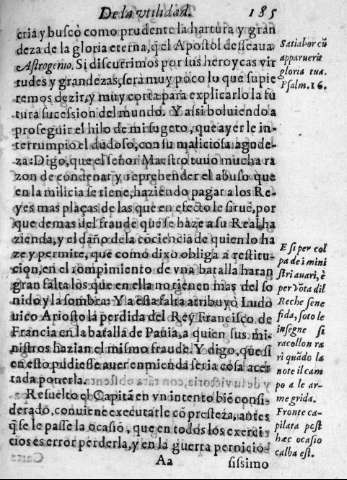 De la vtilidad. 185
cria y buscò como prudente la hartura y gran
deza de la gloria eterna, q̃ el Apostol desseaua
Astrogenio. Si discurrimos por sus heroycas vir
tudes y grandezas, sera muy poco lo que supie
remos dezir, y muy corta para explicarlo la fu
tura sucession del mundo. Y assi boluiendo a
proseguir el hilo de mi sugeto, que ayer le in-
terrumpio el dudoso, con su maliciosa agode-
za: Digo, que el señor Maestro tuuo mucha ra
zon de condenar y reprehender el abuso que
en la milicia se tiene, haziendo pagar a los Re-
yes mas plaças de las que en efecto le siruẽ, por
que demas del fraude que se haze a su Real ha
zienda, y el daño de la cõciencia de quien lo ha
ze y permite, que como dixo obliga a restitu-
cion, en el rompimiento de vna batalla haran
gran falta los que en ella no tienen mas del so
nido y la sombra. Y a esta falta atribuyò Ludo
uico Ariosto la perdida del Rey Francisco de
Francia en la batalla de Pauia, a quien sus mi-
nistros hazian el mismo fraude. Y digo, que si
en esto pudiesse auer enmienda seria cosa acer
tada ponerla.
Resuelto el Capitã en vn intento biẽ consi-
derado, conuiene executarle cõ presteza, antes
que se le passe la ocasiõ, que en todos los exerci
cios es error perderla, y en la guerra pernicio
Aa sissimo
Satiabor cũ
apparuerit
gloria tua.
Psalm. 16.
E si per col
pa de i mini
stri auari, è
per võta dil
Reche sene
fida, soto le
insegne si
racollon ra
ri quãdo la
note il cam
po a le ar-
me grida.
Fronte ca-
pilata pest
hac ocasio
calba est.